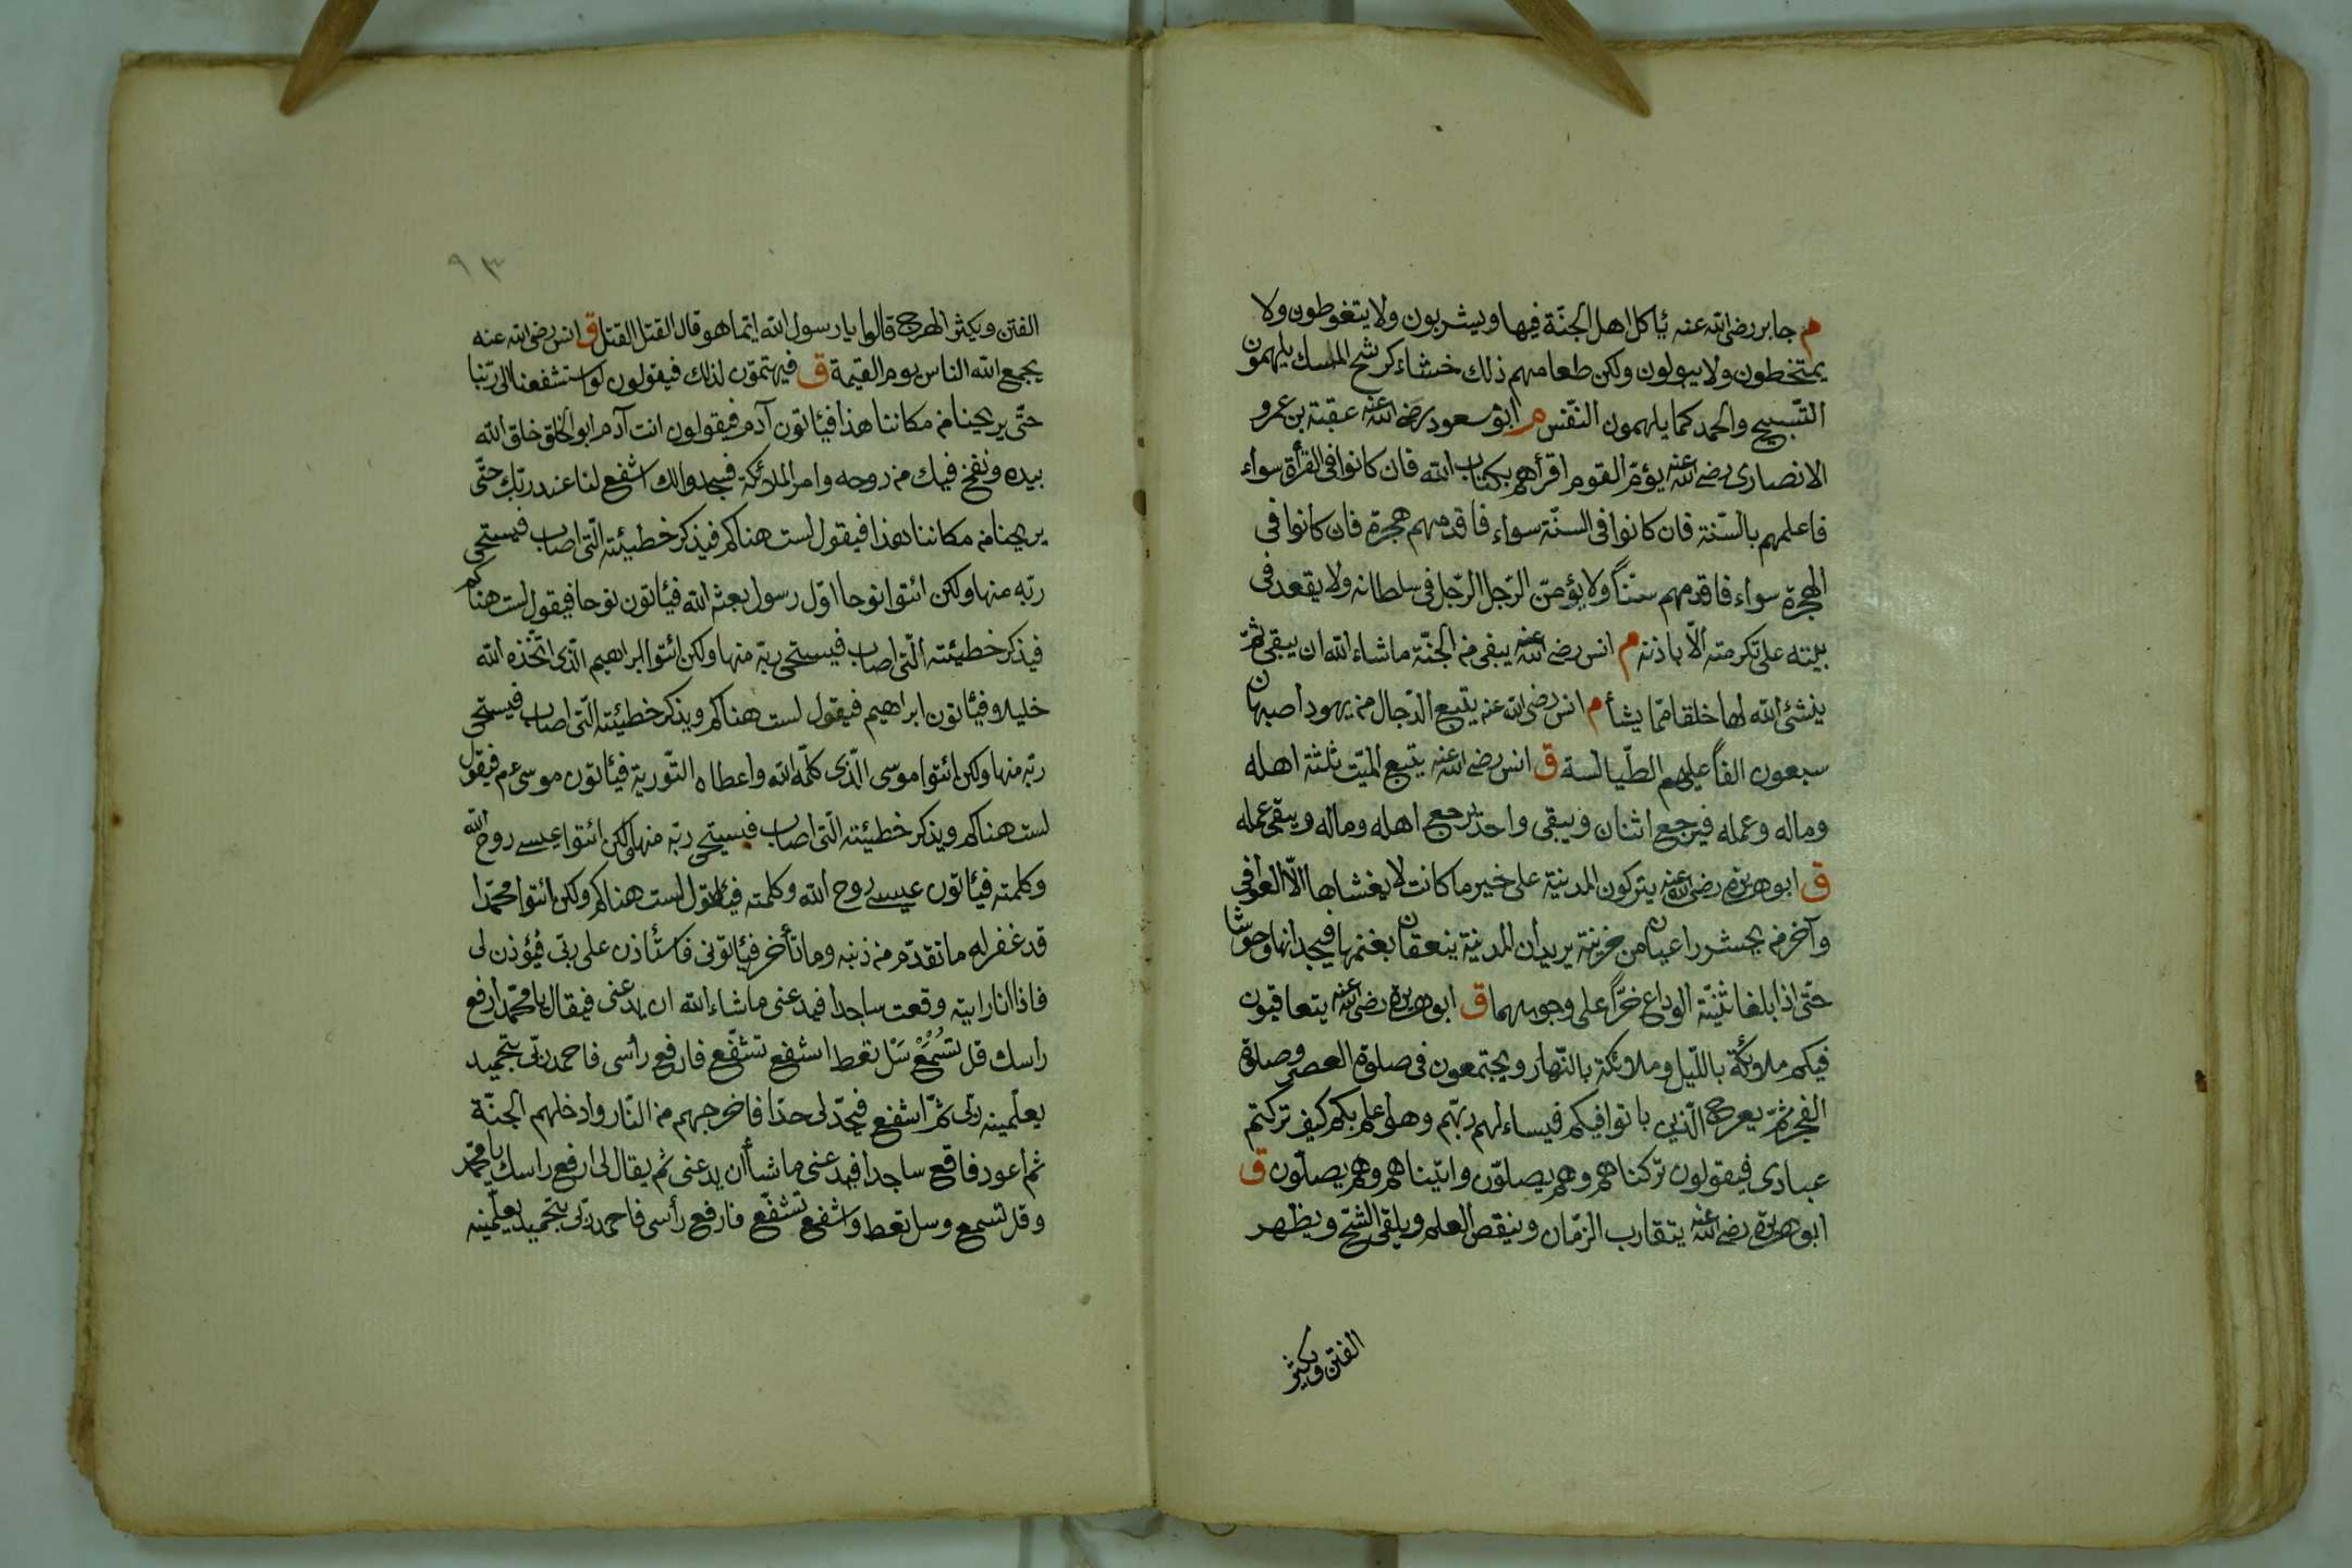 م جابر رضى الله عنه يأكل اهل الجنّة فيها ويشربون ولا يتغوطون ولا
يمتخطون ولا يبولون ولكن طعامهم ذلك خشاء كرشح المسك يلهمون
التّسبيح والحمد كما يلهمون النّفس م ابو مسعود رضى الله عنه عقبة بن عمرو
الانصارى رضى الله عنه يؤمّ القوم اقرأهم بكتاب الله فان كانوا فى القرأة سواء
فاعلمهم بالسّنة فان كانوا فى السنّة سواء فاقدمهم هجرة فان كانوا فى
الهجرة سواء فاقدمهم سنّاً ولا يؤمّن الرّجل الرّجل فى سلطانه ولا يقعد فى
بيته على تكرمته الّا باذنه م انس رضى الله عنه يبقى من الجنّة ما شاء الله ان يبقى ثمّ
ينشئ الله لها خلقا ممّا يشأ م انس رضى الله عنه يتبع الدّجال من يهود اصبهان
سبعون الفاً عليهم الطّيالسة ق انس رضى الله عنه يتبع الميّت ثلثة اهله
وماله وعمله فيرجع اثنان ويبقى واحد يرجع اهله وماله ويبقى عمله
ق ابو هريرة رضى الله عنه يتركون المدينة على خير ما كانت لا يغشاها الّا العوافى
وآخر من يحشر راعيان من مزينة يريدان المدينة ينعقان بغنمها فيجدانها وحوشا
حتّى اذا بلغا ثنيّة الوداع خرّاً على وجوههما ق ابو هريرة رضى الله عنه يتعاقبون
فيكم ملائكة بالّليل وملائكة بالنّهار ويجتمعون فى صلوة العصر وصلوة
الفجر ثمّ يعرج الّذين باتوا فيكم فيساءلهم ربّهم وهو اعلم بكم كيف تركتم
عبادى فيقولون تركناهم وهم يصلّون واتيناهم وهم يصلّون ق
ابو هريرة رضى الله عنه يتقارب الزّمان وينقص العلم ويلقى الشّحّ ويظهر
الفتن ويكثر
٩٣
الفتن ويكثر الهرج قالوا يا رسول الله ايّما هو قال القتل القتل ق انس رضى الله عنه
يجمع الله الناس يوم القيمة ق فيهتمّون لذلك فيقولون لو استشفعنا الى ربّنا
حتّى يريحنا من مكاننا هذا فيأتون آدم فيقولون انت آدم ابو الخلق خلق الله
بيده ونفخ فيك من روحه وامر الملائكة فسجدوا لك اشفع لنا عند ربّك حتّى
يريحنا من مكاننا هذا فيقول لست هناكم فيذكر خطيئته الّتى اصاب فيستحى
ربّه منها ولكن ائتوا نوحا اوّل رسول بعثه الله فيأتون نوحا فيقول لست هناكم
فيذكر خطيئته الّتى اصاب فيستحى ربّه منها ولكن ائتوا ابراهيم الّذى اتّخذه الله
خليلا فيأتون ابراهيم فيقول لست هناكم ويذكر خطيئته الّتى اصاب فيستحى
ربّه منها ولكن ائتوا موسى الّذى كلّمه الله واعطاه التّورية فيأتون موسى عم فيقول
لست هناكم ويذكر خطيئته الّتى اصاب فيستحى ربّه منها ولكن ائتوا عيسى روح الله
وكلمته فيأتون عيسى روح الله وكلمته فيقول لست هناكم ولكن ائتوا محمّدا
قد غفر له ما تقدّم من ذنبه وما تأخر فيأتونى فاستأذن على ربّى فيؤذن لى
فاذا انا رايته وقعت ساجدا فيدعنى ما شاء الله ان يدعنى فيقال يا محمّد ارفع
راسك قل تُسْمَعْ سَلْ تعط اشفع تشفّع فارفع رأسى فاحمد ربّى بتحميد
يعلّمينه ربّى ثمّ اشفع فيحدّ لى حدّا فاخرجهم من النّار وادخلهم الجنّة
ثم اعود فاقع ساجدا فيدعنى ما شأ أن يدعنى ثم يقال لى ارفع راسك يا محمّد
وقل تسمع وسل تعط واشفع تشفّع فارفع رأسى فاحمد ربّى بتحميد يعلّمينه